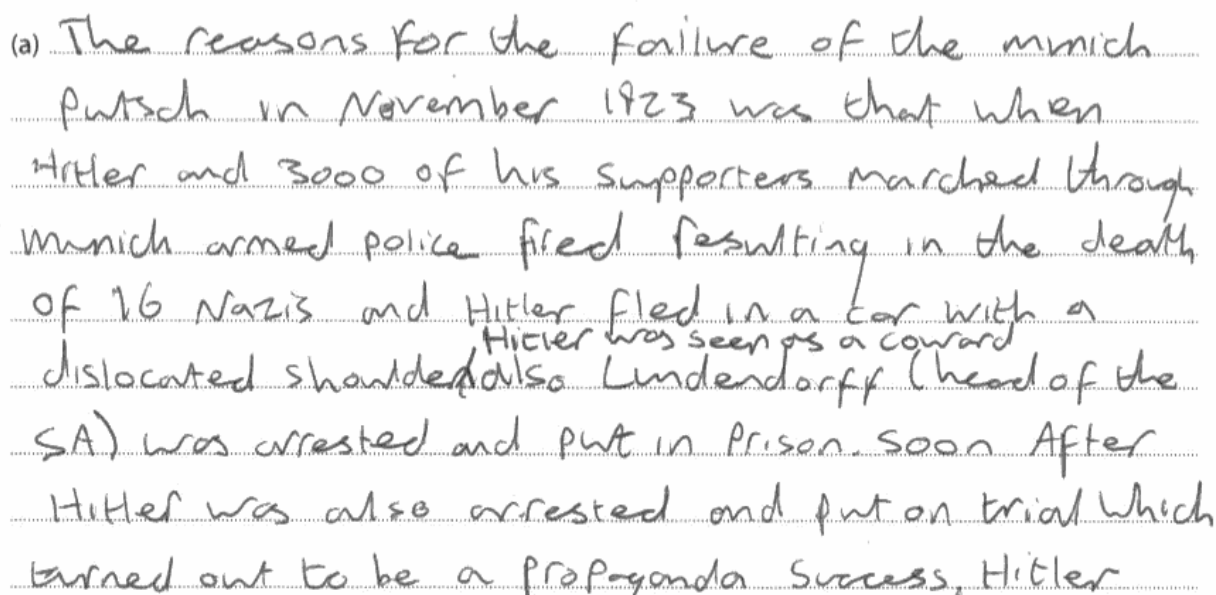 (a) The reasons for the failure of the munich
Putsch in November 1923 was that when
Hitler and 3000 of his supporters marched through
munich armed police fired resulting in the death
of 16 Nazis and Hitler fled in a car with a
Hitler was seen as a coward
dislocated shoulder/also Lundendorff (head of the
SA) was arrested and put in Prison. Soon After
Hitler was also arrested and put on trial which
turned out to be a propaganda success, Hitler